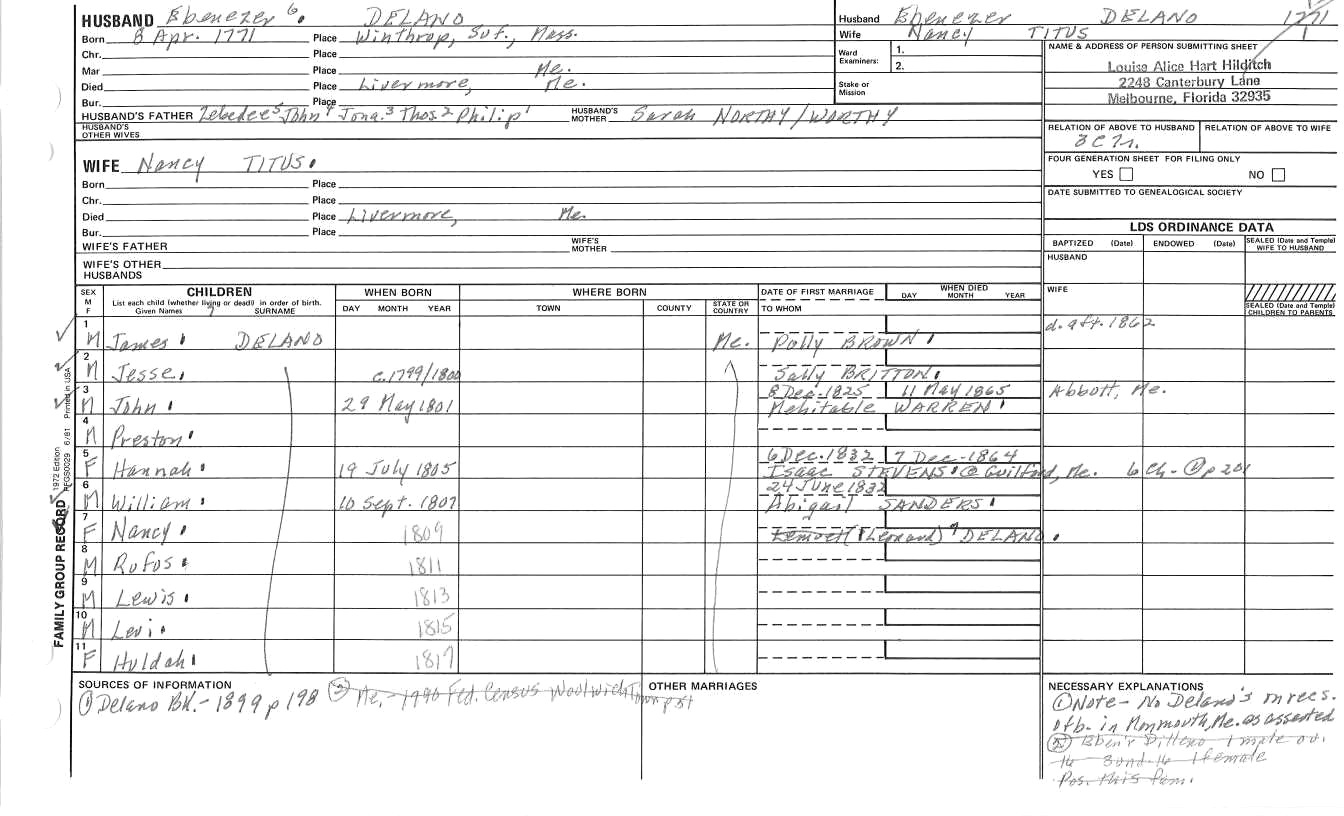 HUSBAND Ebenezer 6. DELANO
Born 8 Apr. 1771 Place Winthrop, Suf., Mass.
Chr. Place
Mar Place Me.
Died Place Livermore, Me.
Bur. Place
HUSBAND'S FATHER Zebedee5 John4 Jona.3 Thos2 Philip1 HUSBAND'S MOTHER Sarah NORTHY/WORTHY
HUSBAND'S OTHER WIVES
WIFE Nancy TITUS.
Born Place
Chr. Place
Died Place Livermore, Me.
Bur. Place
WIFE'S FATHER WIFE'S MOTHER
WIFE'S OTHER HUSBANDS
Husband Ebenezer DELANO 1771
Wife Nancy TITUS
Ward Examiners: 1.
2.
Stake or Mission
NAME & ADDRESS OF PERSON SUBMITTING SHEET
Louise Alice Hart Hilditch
2248 Canterbury Lane
Melbourne, Florida 32935
RELATION OF ABOVE TO HUSBAND RELATION OF ABOVE TO WIFE
FOUR GENERATION SHEET FOR FILING ONLY
YES NO
DATE SUBMITTED TO GENEALOGICAL SOCIETY
LDS ORDINANCE DATA
BAPTIZED (Date) ENDOWED (Date) SEALED (Date and Temple) WIFE TO HUSBAND
HUSBAND
WIFE
SEALED (Date and Temple) CHILDREN TO PARENTS
SEX M F CHILDREN WHEN BORN WHERE BORN DATE OF FIRST MARRIAGE WHEN DIED
List each child (whether living or dead) in order of birth.
Given Names SURNAME DAY MONTH YEAR TOWN COUNTY STATE OR COUNTRY TO WHOM DAY MONTH YEAR
1 M James DELANO Me. Polly BROWN d. aft. 1862
2 M Jesse c.1799/1800 Sally BRITTON
3 M John 29 May 1801 8 Dec. 1825 11 May 1865 Abbott, Me.
Mehitable WARREN
4 M Preston
5 F Hannah 19 July 1805 6 Dec. 1832 7 Dec. 1864
Isaac STEVENS @ Guilford, Me. 6 Ch - ① p 201
6 M William 10 Sept. 1807 24 June 1832
Abigail SANDERS
7 F Nancy 1809 Lemuel (Leonard) DELANO.
8 M Rufus 1811
9 M Lewis 1813
10 M Levi 1815
11 F Huldah 1817
FAMILY GROUP RECORD 1972 Edition PFGS0029 6/81 Printed in USA
SOURCES OF INFORMATION
① Delano BK. - 1899 p 198 ② Me. - 1790 Fed. Census Woolwich Town p 51
OTHER MARRIAGES
NECESSARY EXPLANATIONS
① Note - No Delano's m recs.
or b. in Monmouth, Me. as asserted
② Eben'r Dilleno 1 male ov.
16 3 und. 16 1 female
Pos. this fam.